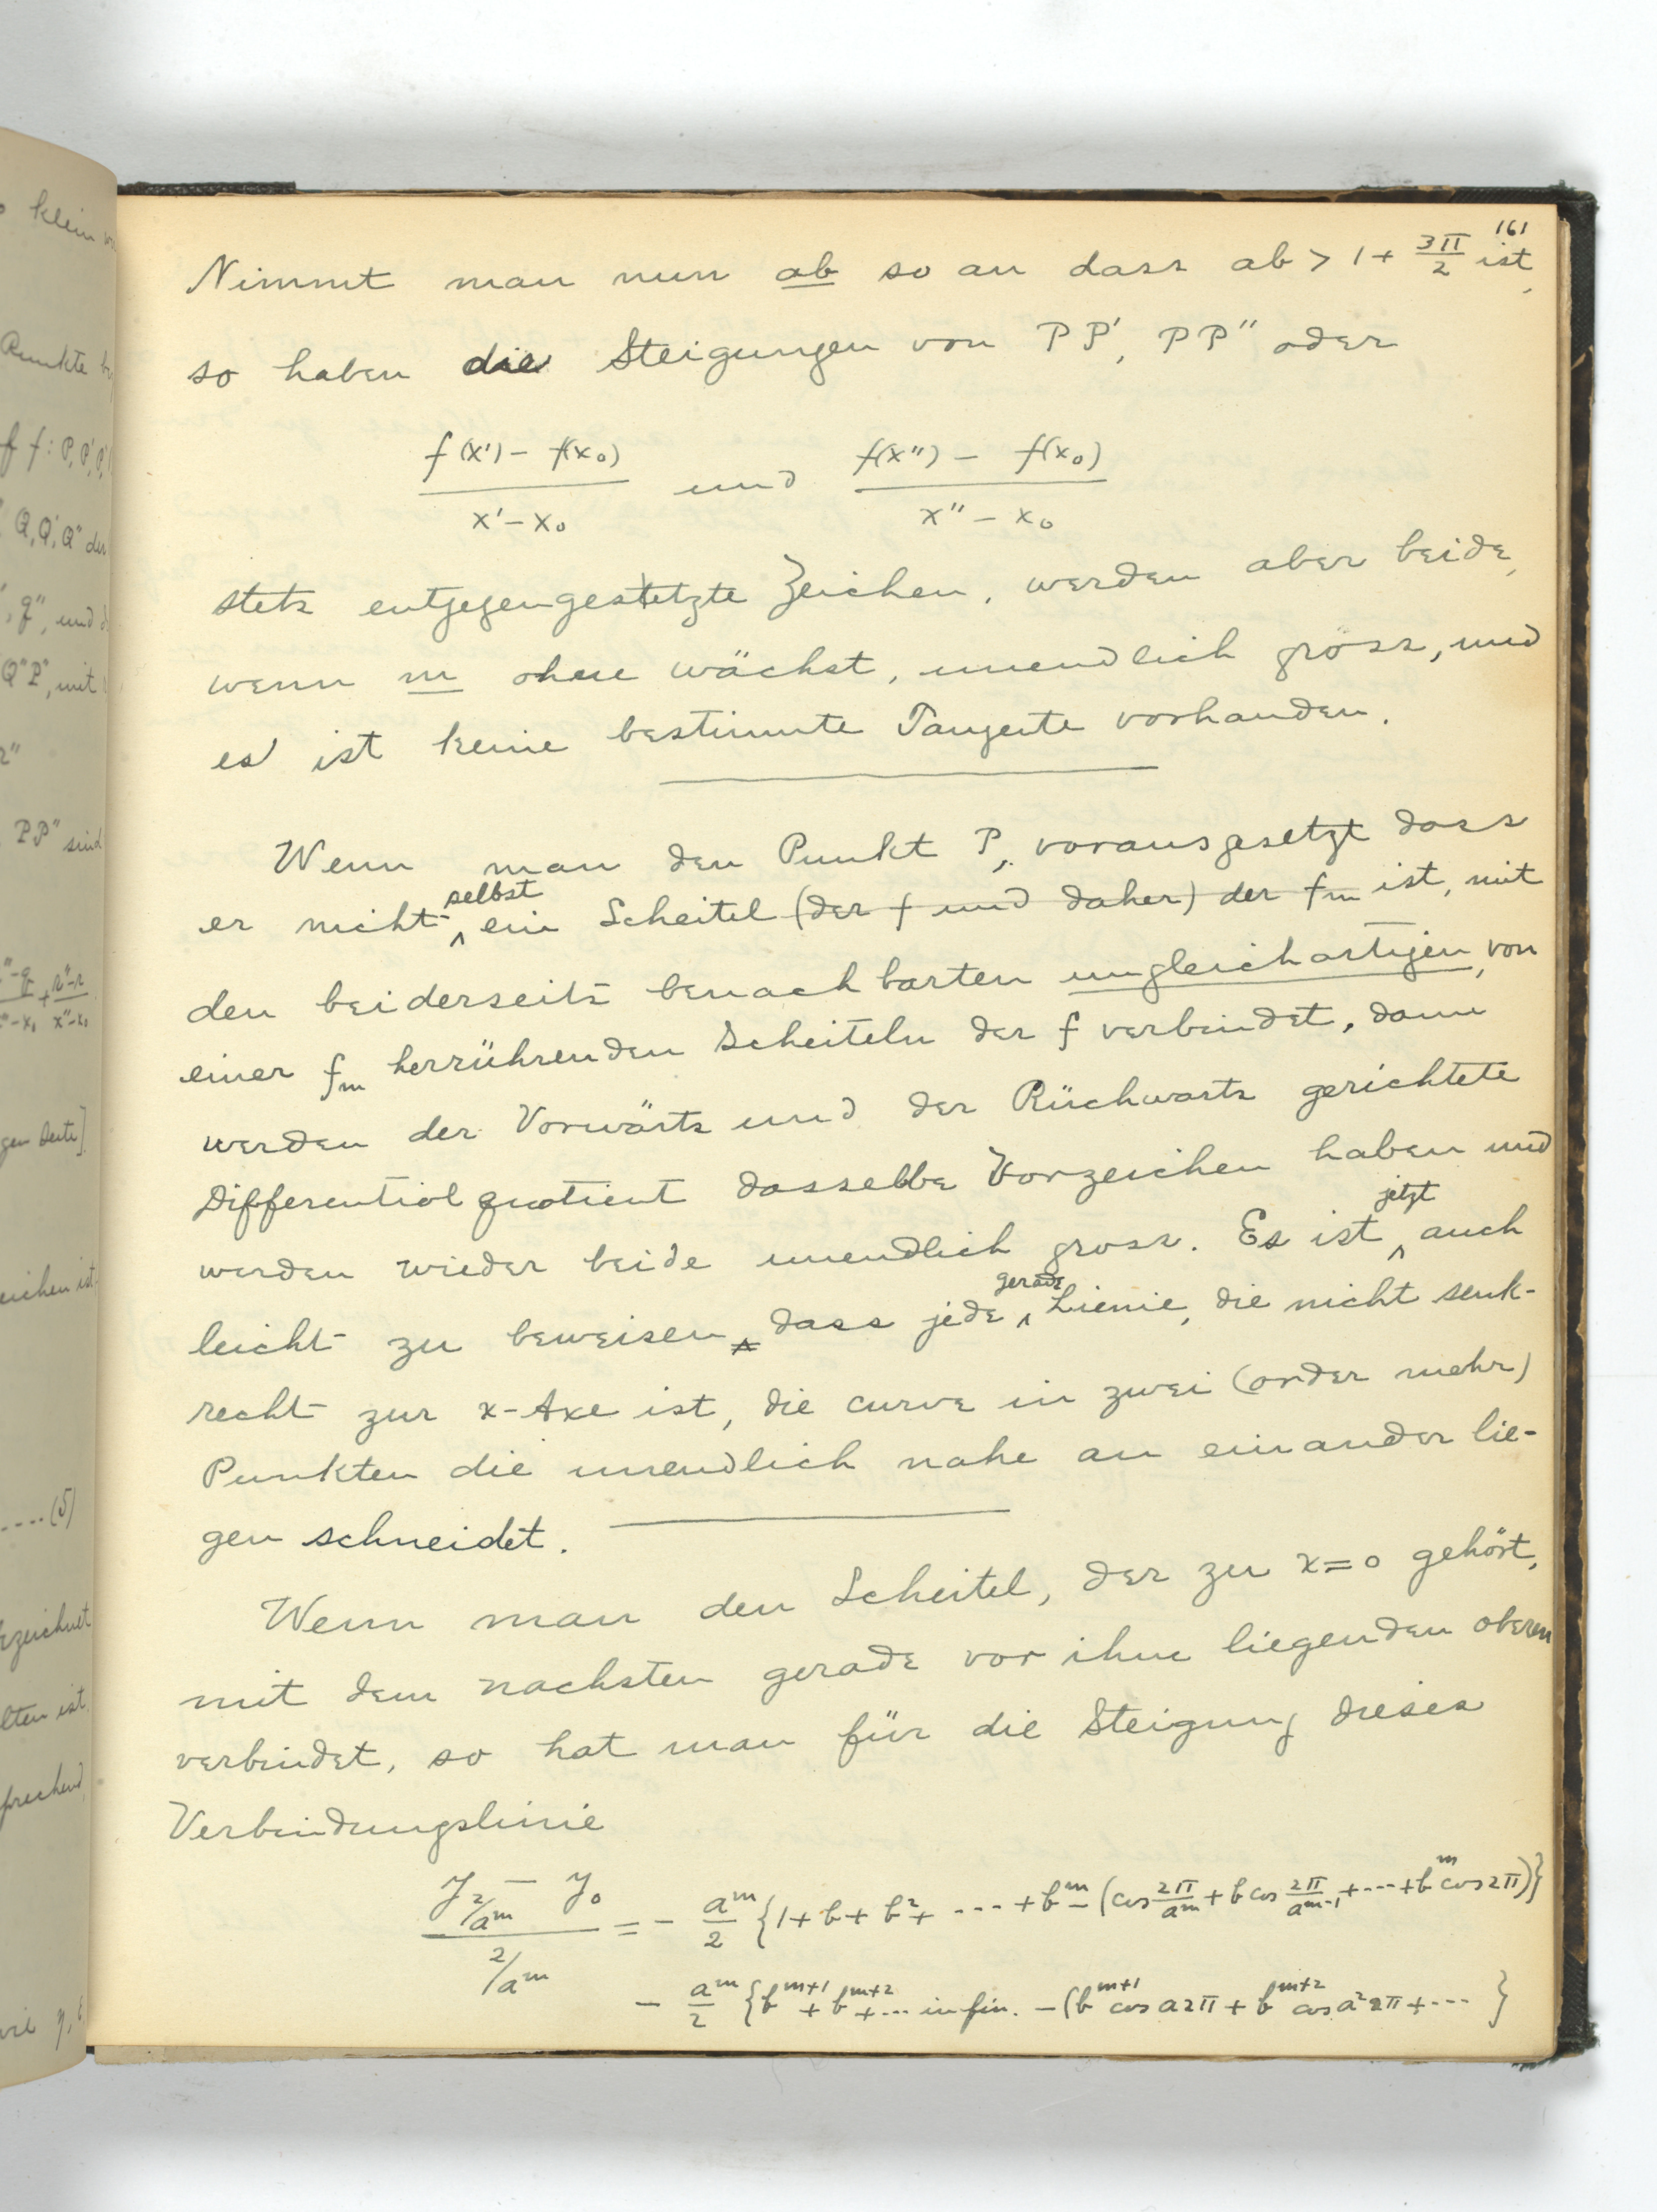 161
Nimmt man nun ab so an dass ab > 1 + 3π/2 ist,
so haben die Steigungen von PP', PP'' oder
(f(x') - f(x₀))/(x' - x₀) und (f(x'') - f(x₀))/(x'' - x₀)
stets entgegengesetzte Zeichen, werden aber beide,
wenn m ohne wächst, unendlich gross, und
es ist keine bestimmte Tangente vorhanden.
Wenn man den Punkt P, vorausgesetzt dass
er nicht selbst ein Scheitel (der f und daher) der fm ist, mit
den beiderseits benachbarten ungleichartigen, von
einer fm herrührenden Scheiteln der f verbindet, dann
werden der Vorwärts und der Rüchwarts gerichtete
Differentialquotient dasselbe Vorzeichen haben und
werden wieder beide unendlich gross. Es ist jetzt auch
leicht zu beweisen, dass jede gerade Linie, die nicht senk-
recht zur x-Axe ist, die curve in zwei (order mehr)
Punkten die unendlich nahe an einander lie-
gen schneidet.
Wenn man den Scheitel, der zu x=0 gehört,
mit dem nachsten gerade vor ihm liegenden oberen
verbindet, so hat man für die Steigung dieses
Verbindungslinie
(y_{2/a^m} - y₀)/(2/a^m) = - a^m/2 {1 + b + b² + ---- + b^m - (cos 2π/a^m + b cos 2π/a^{m-1} + ---- + b^m cos 2π)}
- a^m/2 {b^{m+1} + b^{m+2} + ··· in fin. - (b^{m+1} cos a2π + b^{m+2} cos a²2π + ---- }